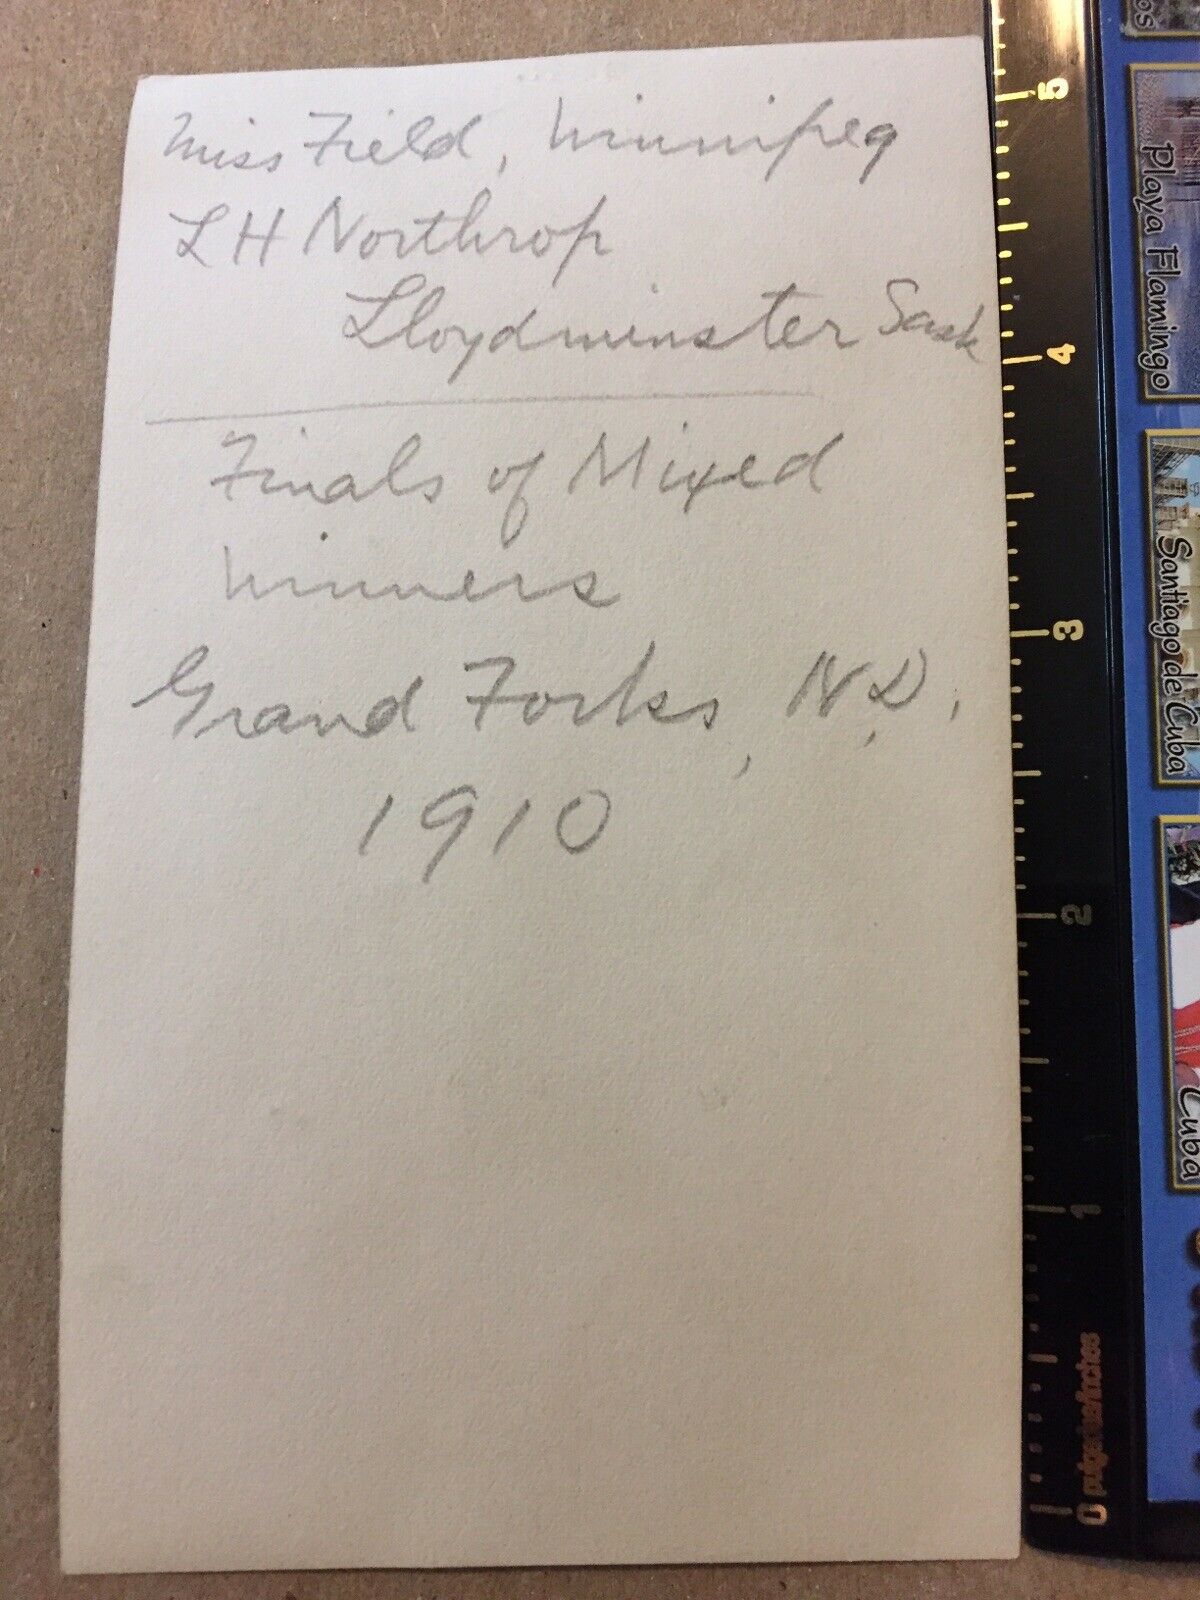 Miss Field, Winnipeg
LH Northrop
Lloydminster Sask
Finals of Mixed
Winners
Grand Forks, N.D.
1910
5
4
3
2
1
0 pulgadas/inches
Playa Flamingo
Santiago de Cuba
Cuba